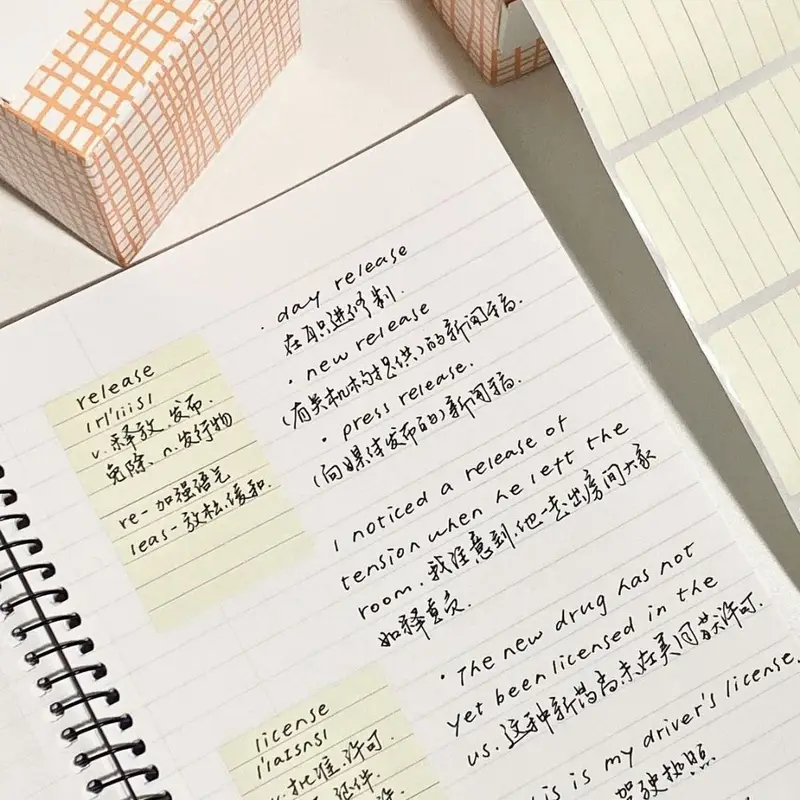 release
/rɪ'liːs/
v.释放.发布.
免除、n.发行物
re-加强语气
leas-放松.缓和.
· day release
在职进修制.
· new release
(有关机构提供)的新闻稿.
· press release.
(向媒体发布的)新闻稿.
I noticed a release of
tension when he left the
room.我注意到,他一走出房间大家
如释重负.
license
/'laɪsns/
v.批准.许可.
证件.
· The new drug has not
yet been licensed in the
us.这种新药尚未在美国获许可.
is is my driver's license.
驾驶执照